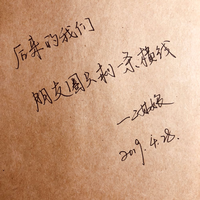 后来的我们
朋友圈只剩一条横线
2019.4.28.